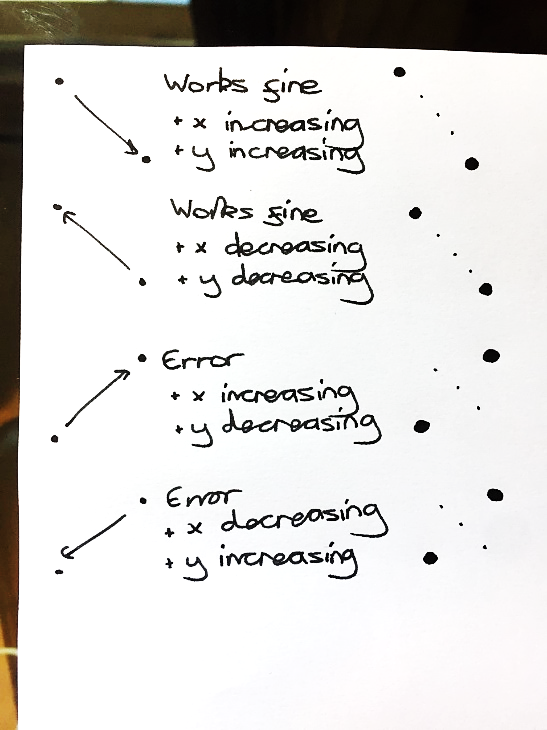 Works fine
+ x increasing
+ y increasing
Works fine
+ x decreasing
+ y decreasing
Error
+ x increasing
+ y decreasing
Error
+ x decreasing
+ y increasing